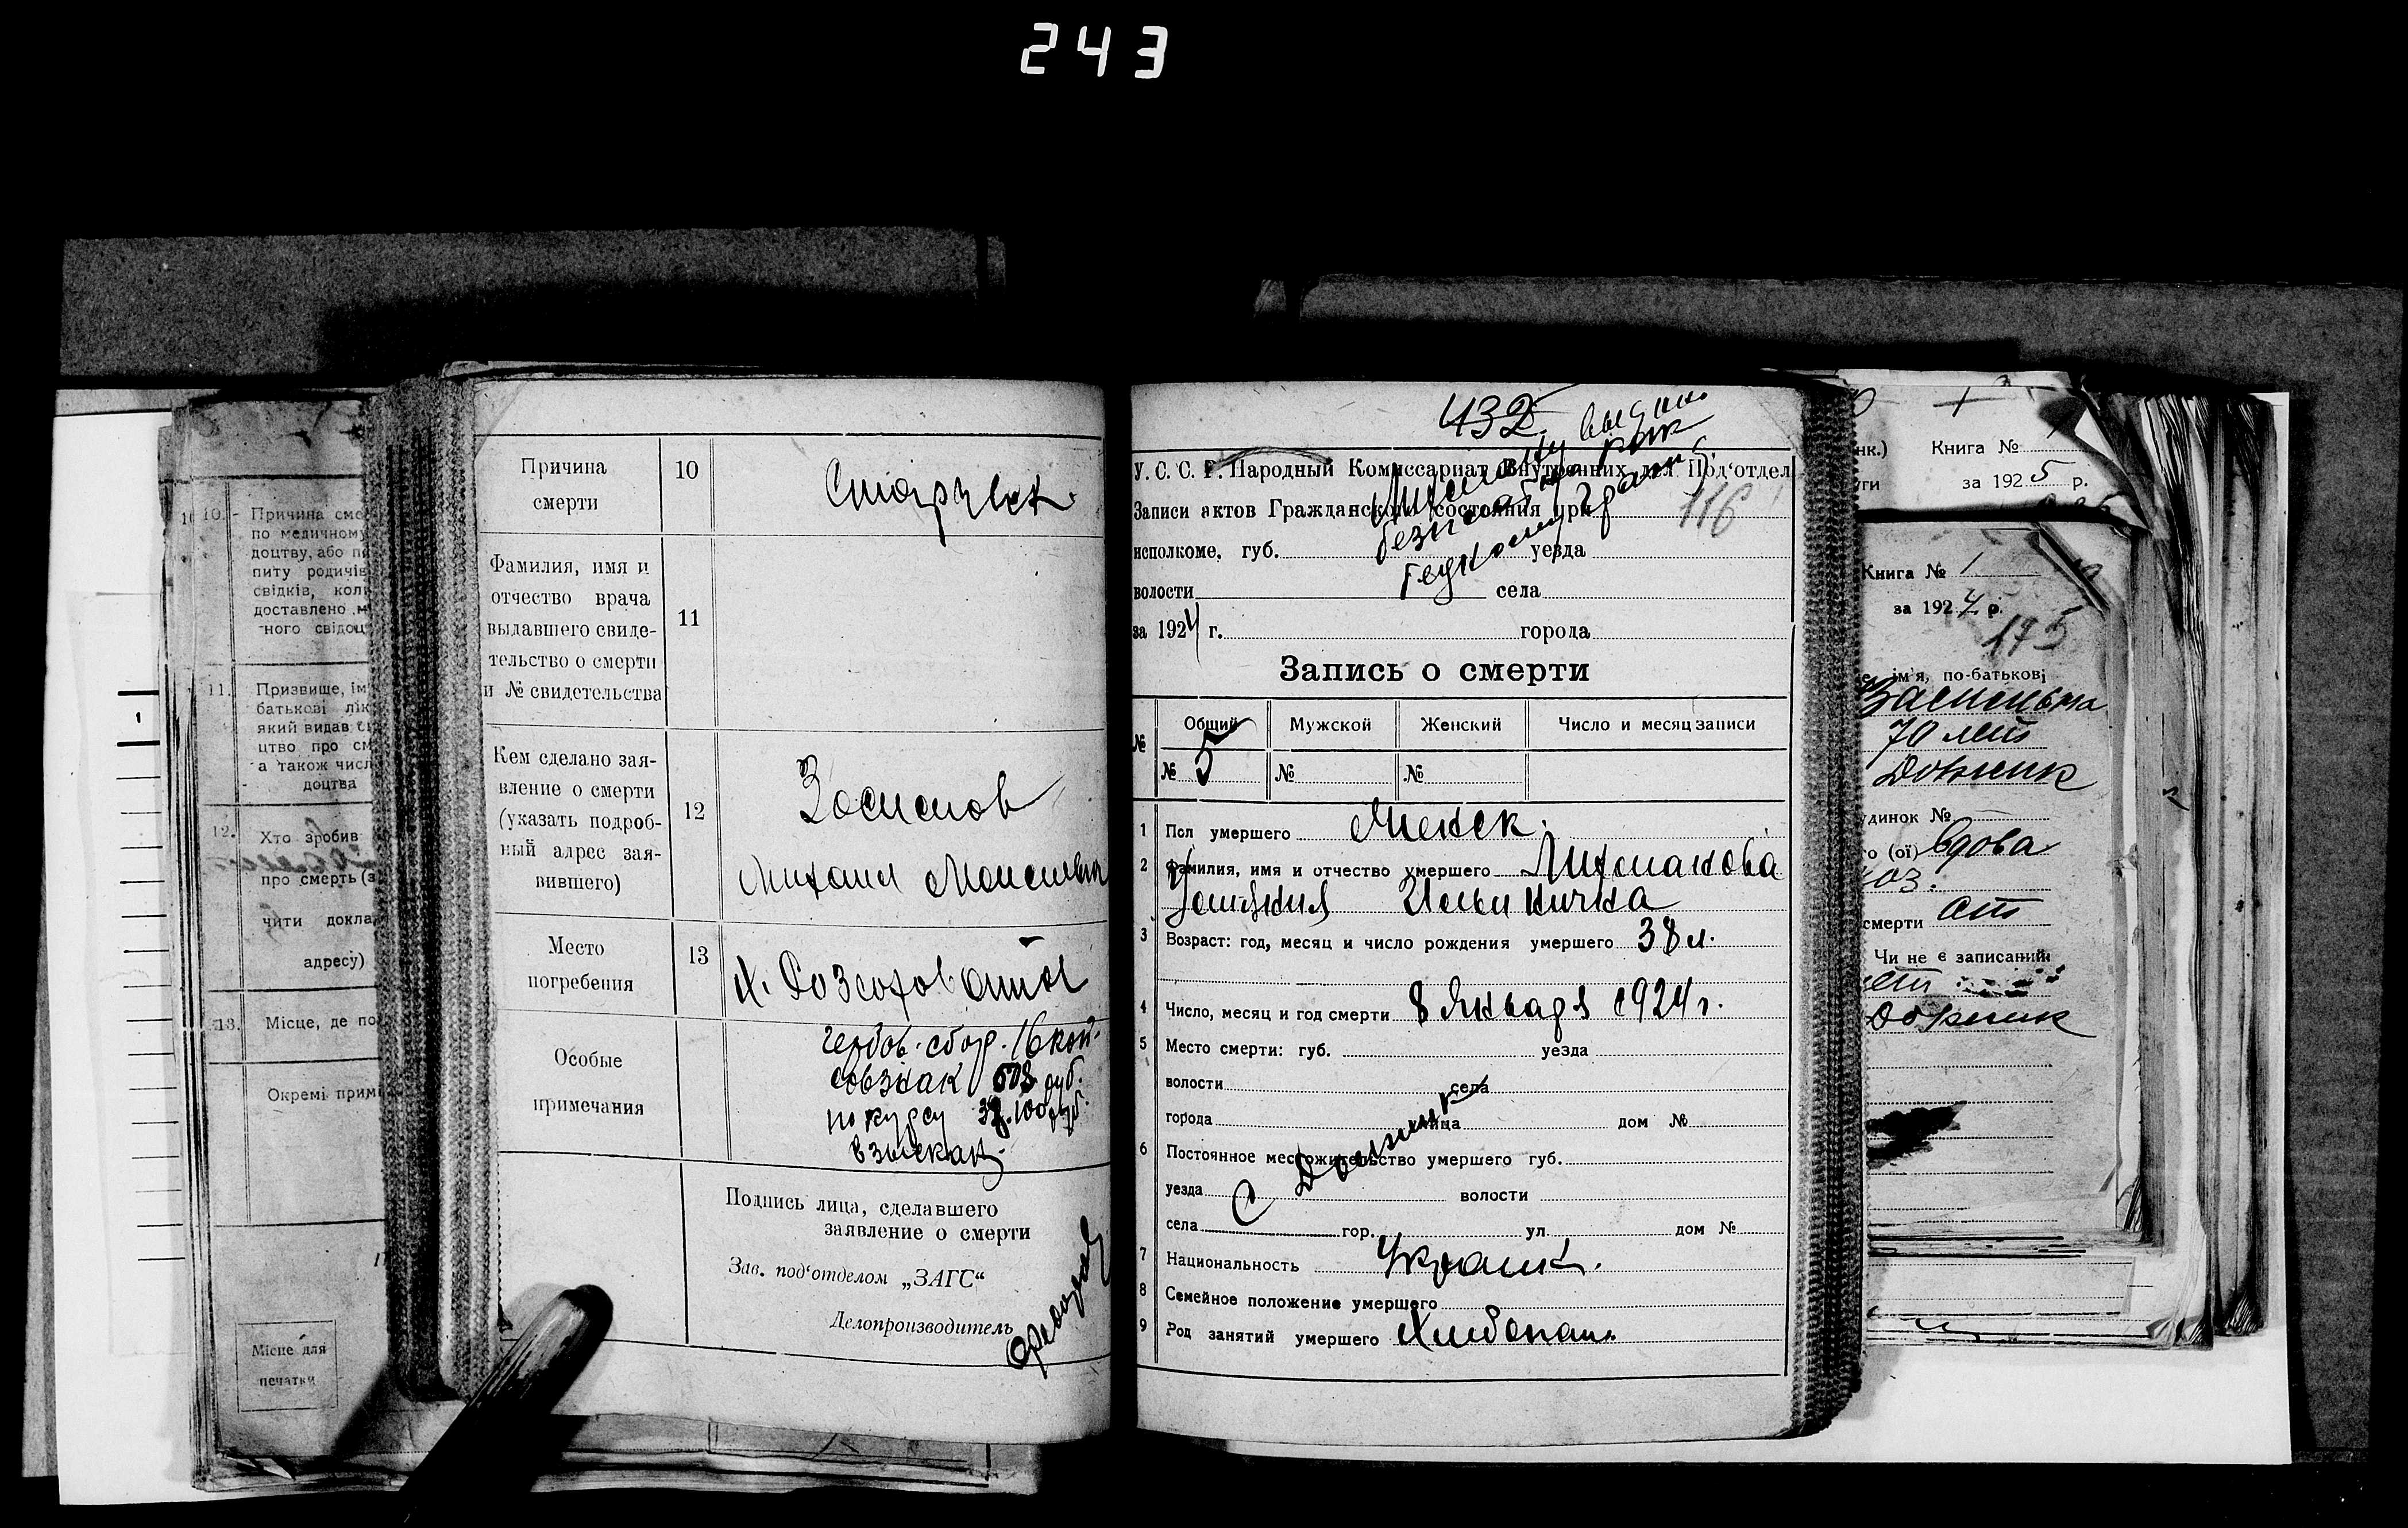 243
10.
Причина сме
по медичному
доцтву, або п
питу родичів
свідків, кол
доставлено м
ного свідоц
11.
Призвище, ім
батькові лік
який видав с
цтво про см
а також числ
доцтва
12.
Хто зробив
про смерть (з
чити докла
адресу)
13.
Місце, де по
Окремі прим
Місце для
печатки
Причина
смерти
10
Фамилия, имя и
отчество врача
выдавшего свиде-
тельство о смерти
и № свидетельства
11
Кем сделано зая-
вление о смерти
(указать подроб-
ный адрес зая-
вившего)
12
Михаил
Место
погребения
13
х.
Особые
примечания
гербов. сбор. 16 коп.
совзнак
по курсу
взыскан.
Подпись лица, сделавшего
заявление о смерти
Зав. под‘отделом „ЗАГС“
Делопроизводитель
432
У. С. С. Р. Народный Комиссариат Внутренних дел Под‘отдел
Записи актов Гражданского состояния при
116
исполкоме, губ. уезда
волости села
за 1924 г. города
Запись о смерти
№ Общий Мужской Женский Число и месяц записи
№ 5 № №
1 Пол умершего Женск.
2 Фамилия, имя и отчество умершего
3 Возраст: год, месяц и число рождения умершего 38 л.
4 Число, месяц и год смерти 8 Января 1924 г.
5 Место смерти: губ. уезда
волости села
города улица дом №
6 Постоянное местожительство умершего губ.
уезда С волости
села гор. ул. дом №
7 Национальность Украин.
8 Семейное положение умершего
9 Род занятий умершего Хлебопаш.
нк.) Книга №
ги за 1925 р.
Книга № 1
за 1924 р.
175
ім'я, по-батькові
70 лет
удинок №
о (ої) вдова
смерти
Чи не є записаний